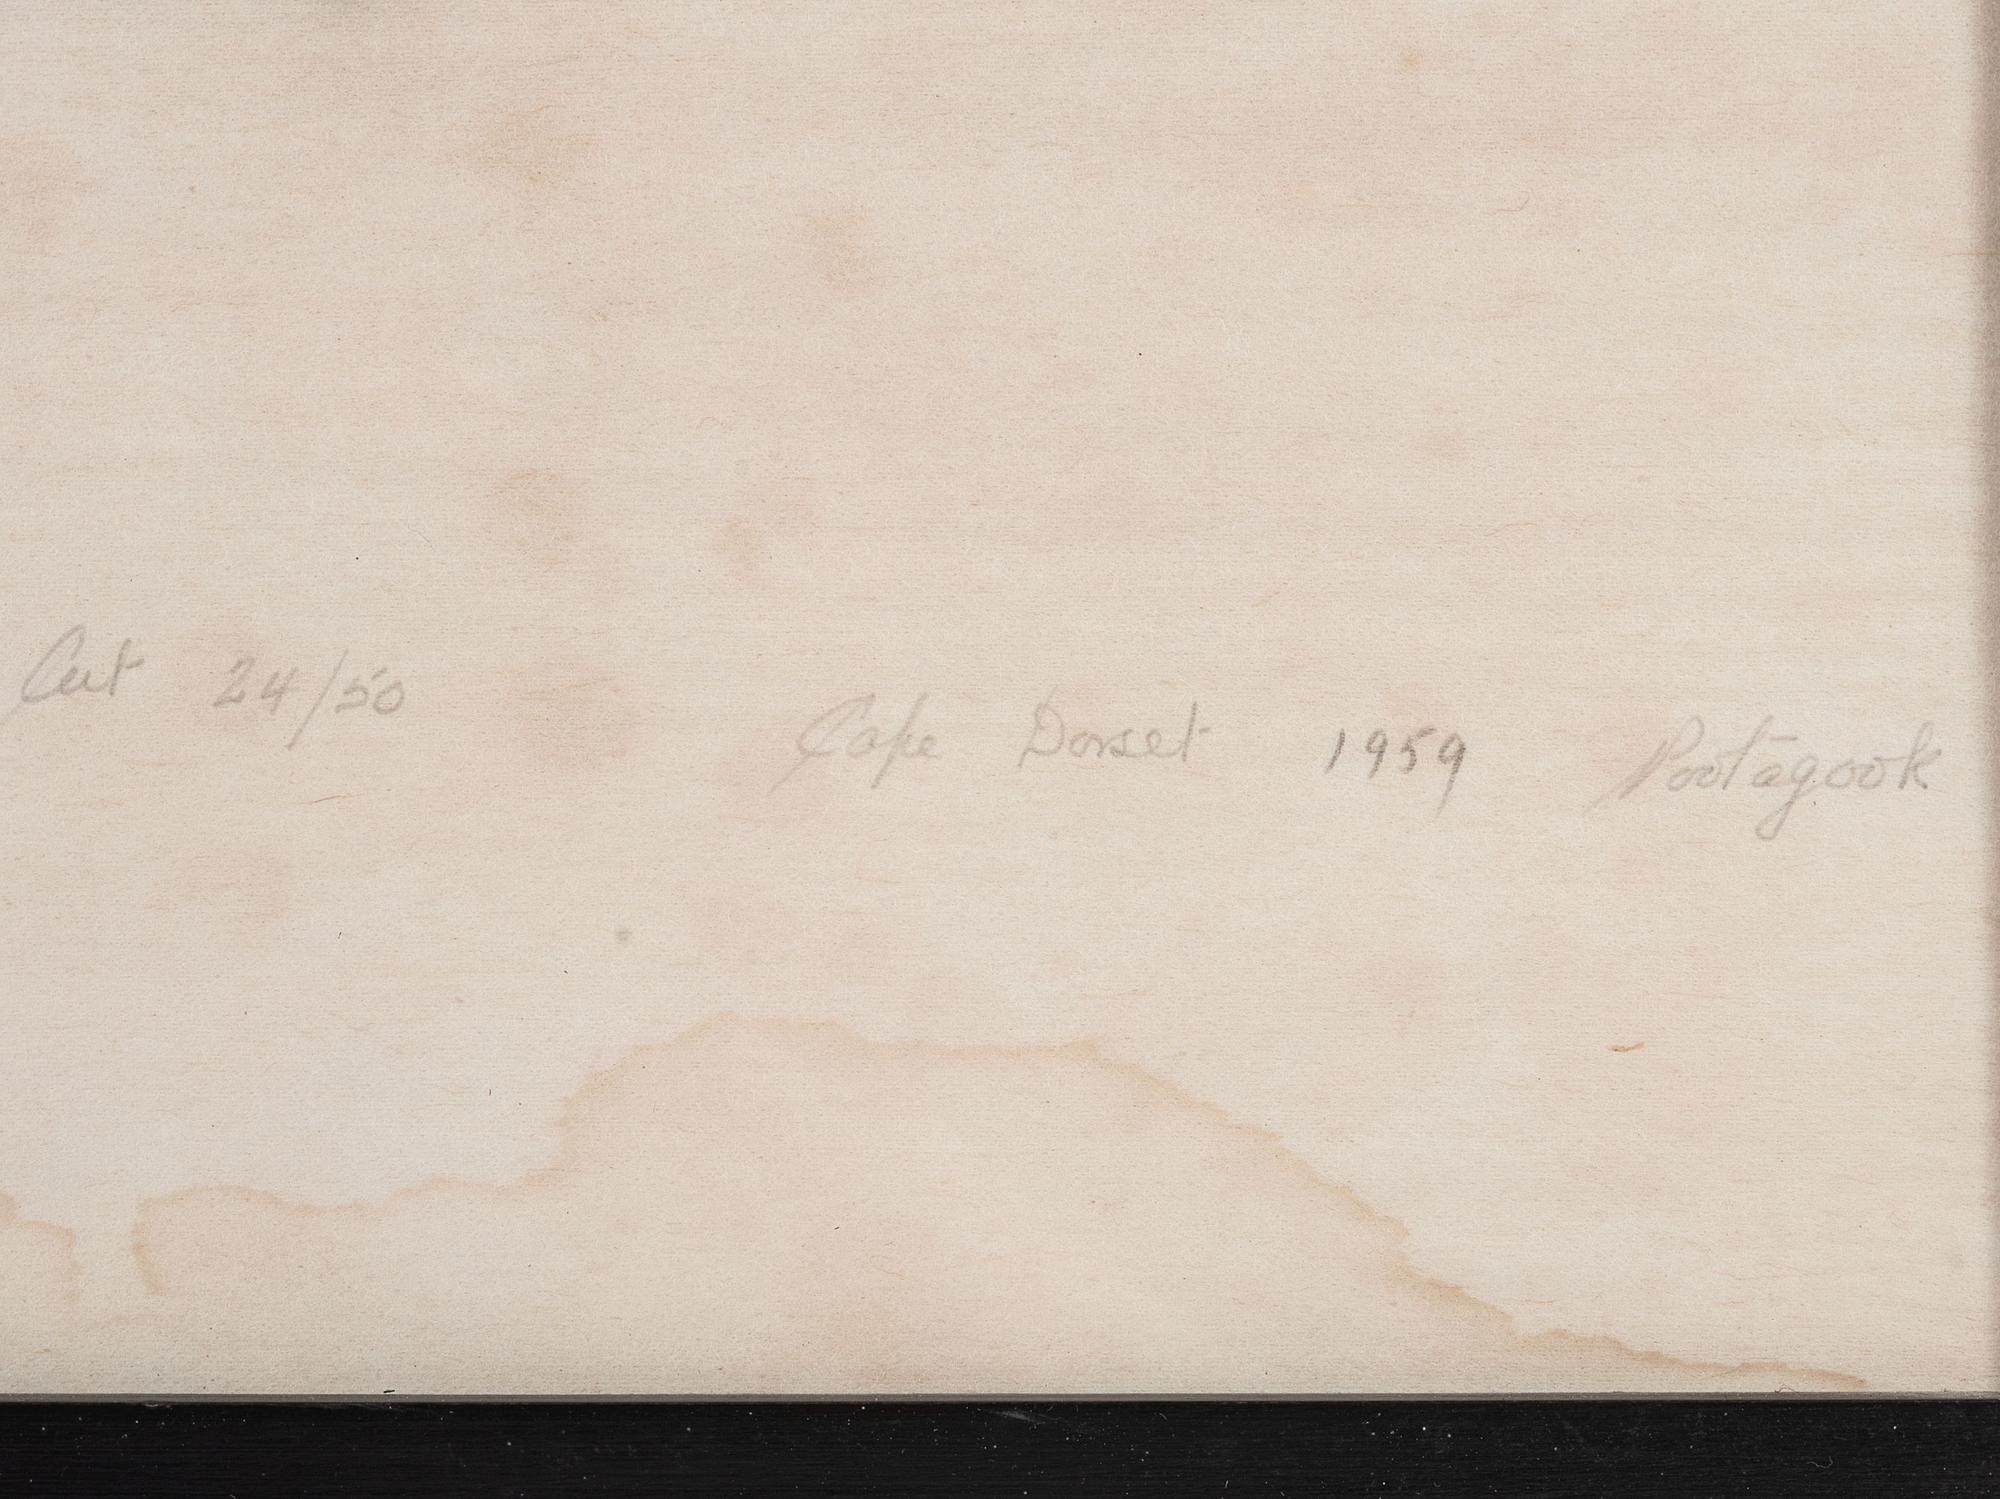 Cut 24/50 Cape Dorset 1959 Pootagook